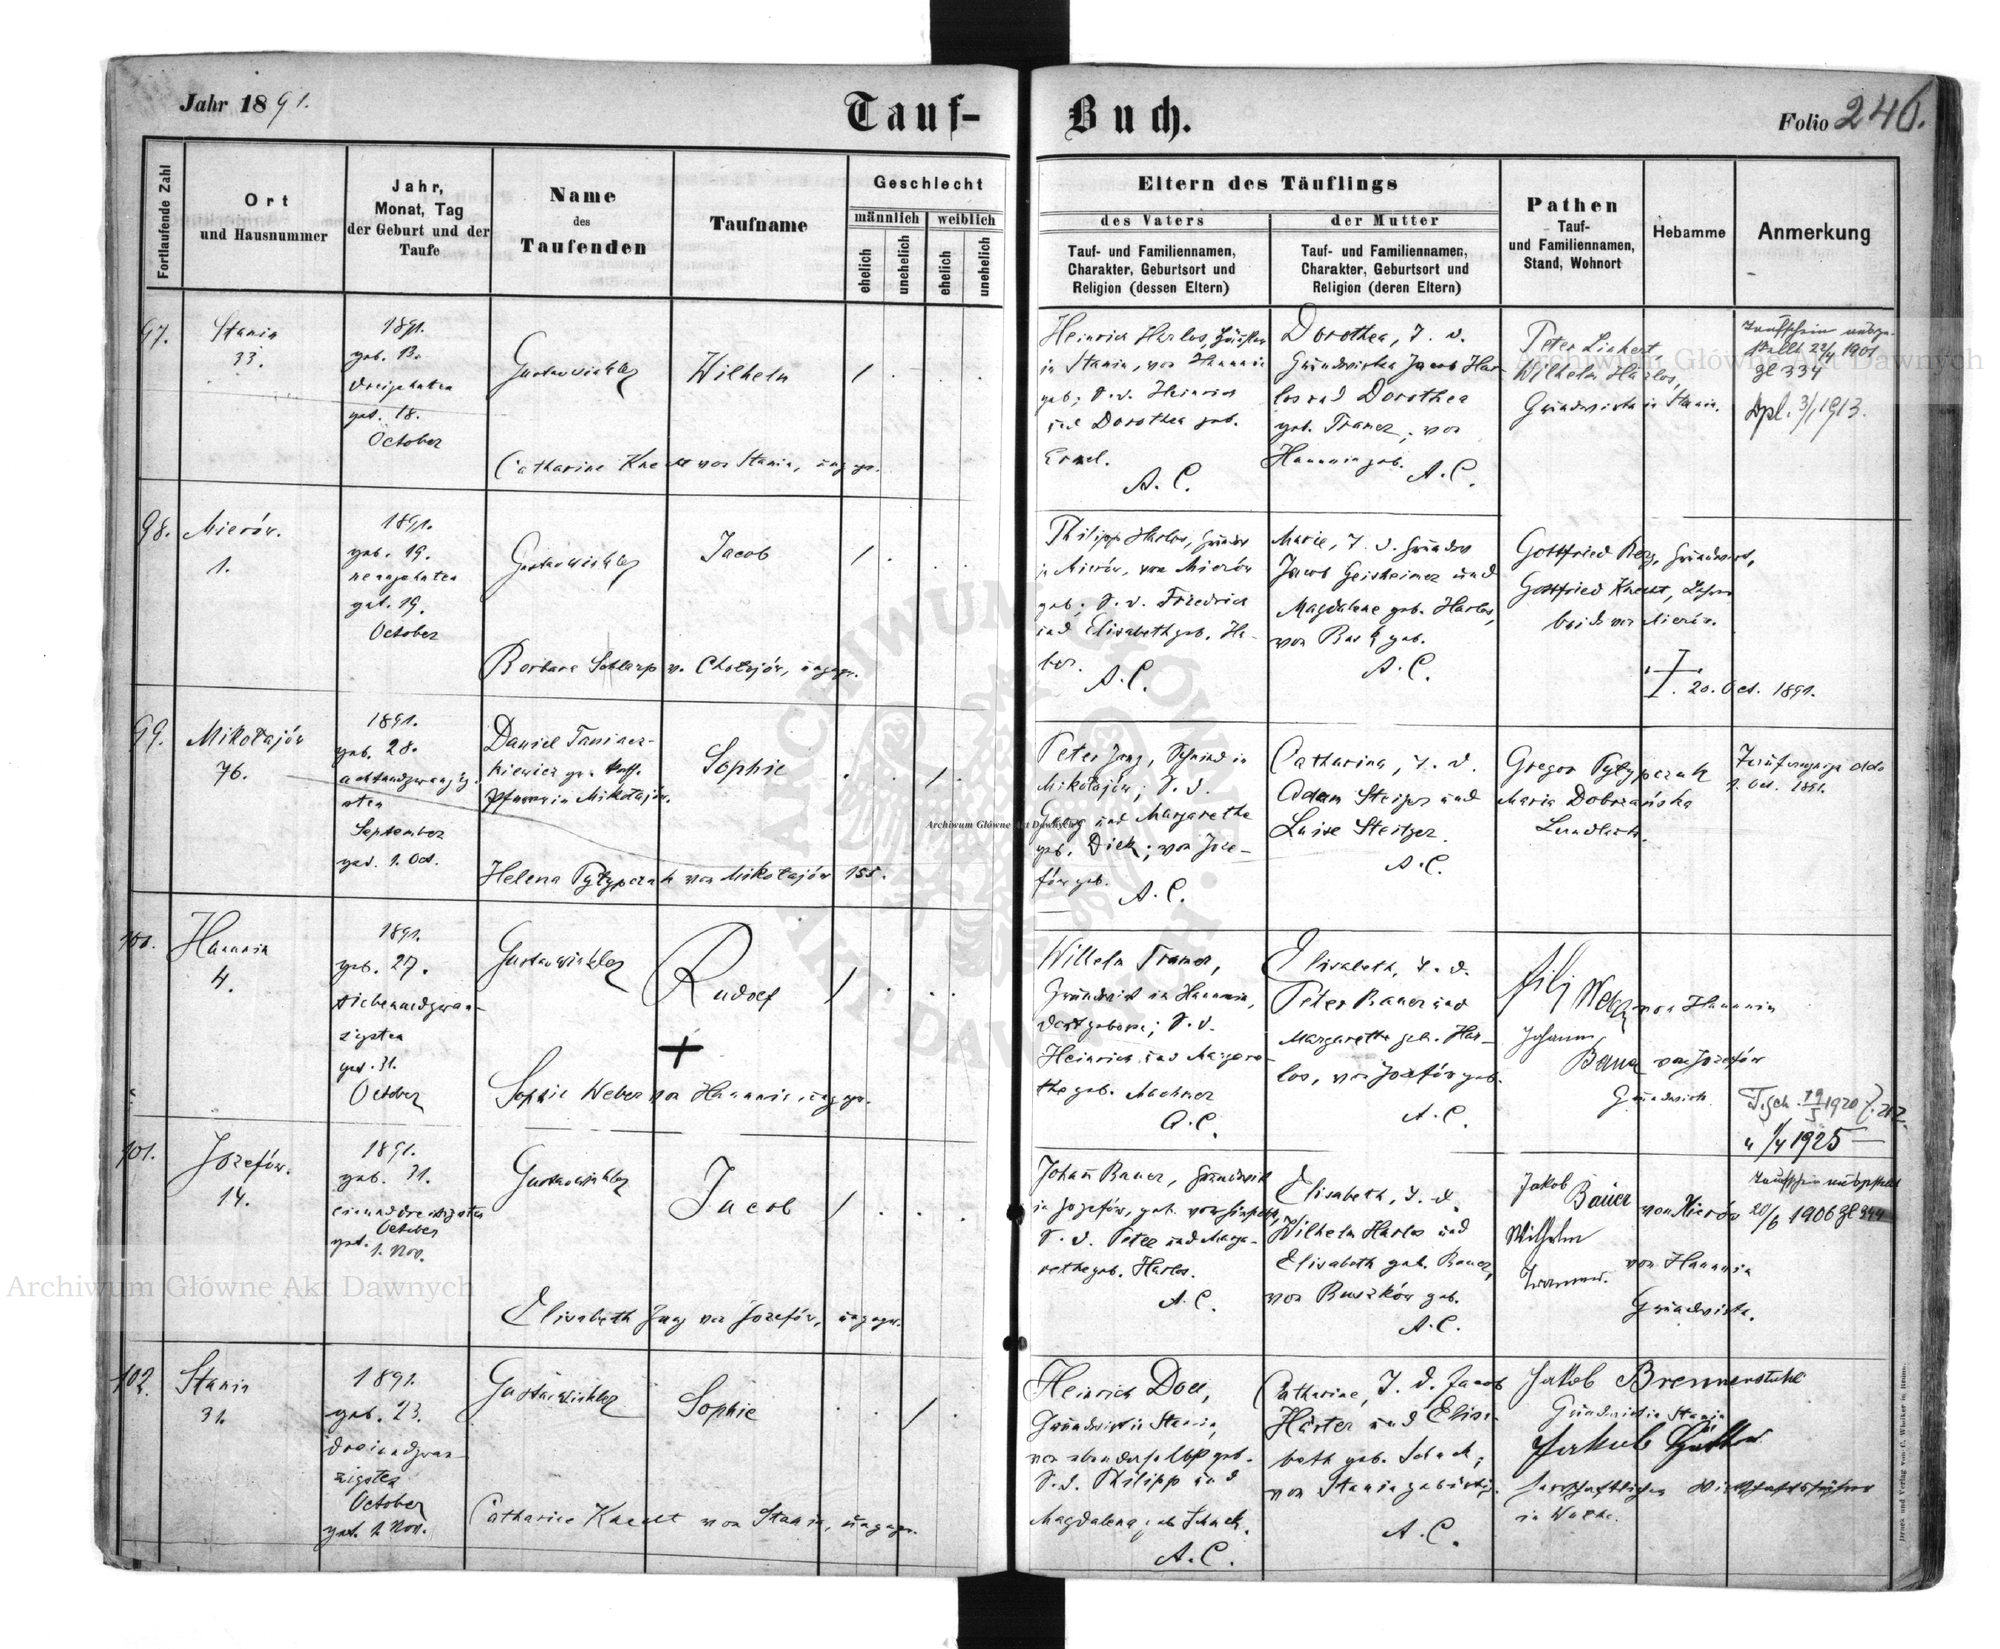 Jahr 1891.
Tauf-
Buch.
Folio 246.
Fortlaufende Zahl
Ort
und Hausnummer
Jahr,
Monat, Tag
der Geburt und der
Taufe
Name
des
Taufenden
Taufname
Geschlecht
männlich
weiblich
ehelich
unehelich
ehelich
unehelich
Eltern des Täuflings
des Vaters
der Mutter
Tauf- und Familiennamen,
Charakter, Geburtsort und
Religion (dessen Eltern)
Tauf- und Familiennamen,
Charakter, Geburtsort und
Religion (deren Eltern)
Pathen
Tauf-
und Familiennamen,
Stand, Wohnort
Hebamme
Anmerkung
97.
Stanin
33.
1891.
geb. 13.
dreizehnten
get. 18.
October
Gustav Wichler
Wilhelm
Catharine Knecht von Stanin, ungepr.
Heinrich Harlos,
in Stanin, von Hanunin
geb.; S. v. Heinrich
und Dorothea geb.
A. C.
Dorothea, T. d.
Grundwirths Jacob Har-
los und Dorothea
geb. Tramer, von
Hanunin geb. A. C.
Peter Linkert
Wilhelm Harlos,
Grundwirthe in Stanin.
Taufschein ausge-
stellt 22/4 1901
Zl 334
dpl. 3/1 1913.
98.
Mierów.
1.
1891.
geb. 19.
neunzehnten
get. 19.
October
Gustav Wichler
Jacob
Barbara Schlarp v. Chołojów, ungepr.
Philipp Harlos, Grundw
in Mierów, von Mierów
geb.; S. v. Friedrich
und Elisabeth geb. Ha-
ber.
A. C.
Marie, T. d. Grundw
Jacob Geisheimer und
Magdalene geb. Harlos,
von geb.
A. C.
Gottfried Grundwirt,
Gottfried Knecht, Lehrer
beide von Mierów.
20. Oct. 1891.
99.
Mikołajów
76.
1891.
geb. 28.
achtundzwanzig-
sten
September
get. 1. Oct.
Daniel Taniacz-
kiewicz gr. kath.
Pfarrer in Mikołajów.
Sophie
Helena Pyłypczuk von Mikołajów 155.
Peter Jung, Schmied in
Mikołajów; S. d.
Georg und Margaretha
geb. Dick; von Józe-
fów geb.
A. C.
Catharina, T. d.
Adam Steiger und
Luise Steitzer
A. C.
Gregor Pyłypczuk
Maria Dobrzańska
Landleute.
Taufzeugniss ddo
1. Oct. 1891.
100.
Hanunin
4.
1891.
geb. 27.
siebenundzwan-
zigsten
get. 31.
October
Gustav Wichler
Rudolf
Sophie Weber von Hanunin, ungepr.
Wilhelm Tramer,
Grundwirt in Hanunin,
dort geboren; S. d.
Heinrich und Margare-
the geb. Machner
A. C.
Elisabeth, T. d.
Peter Bauer und
Margarethe geb. Har-
los, von Józefów geb.
A. C.
Filip Weber von Hanunin
Johann
Bauer von Józefów
Grundwirthe
T.sch. 19/5 1920 Z. 217.
" 1/4 1925 —
101.
Józefów.
14.
1891.
geb. 31.
einunddreissigsten
October
get. 1. Nov.
Gustav Wichler
Jacob
Elisabeth Jung von Józefów, ungepr.
Johann Bauer, Grundwirth
in Józefów, geb. von
S. d. Peter und Marga-
rethe geb. Harlos.
A. C.
Elisabeth, T. d.
Wilhelm Harlos und
Elisabeth geb. Bauer,
von Ruszków geb.
A. C.
Jakob
Bauer von Mierów
Wilhelm
von Hanunin
Tramer.
Grundwirte.
Taufschein ausgestellt
20/6 1906 Zl 344
102.
Stanin
31.
1891.
geb. 23.
dreiundzwan-
zigsten
October
get. 1. Nov.
Gustav Wichler
Sophie
Catharine Knecht von Stanin, ungepr.
Heinrich Doll,
Grundwirt in Stanin,
von ebenderselbst geb.
S. d. Philipp und
Magdalena geb. Schuck.
A. C.
Catharine, T. d. Jacob
Harter und Elisa-
beth geb. Schuck;
von Stanin gebürtig.
A. C.
Jakob Brennerstuhl
Grundwirt in Stanin
Jakob
herrschaftlicher Wirthschaftsführer
in
Druck und Verlag von C. Winiker in Brünn.
Archiwum Główne Akt Dawnych
Archiwum Główne Akt Dawnych
Archiwum Główne Akt Dawnych
ARCHIWUM GŁÓWNE AKT DAWNYCH